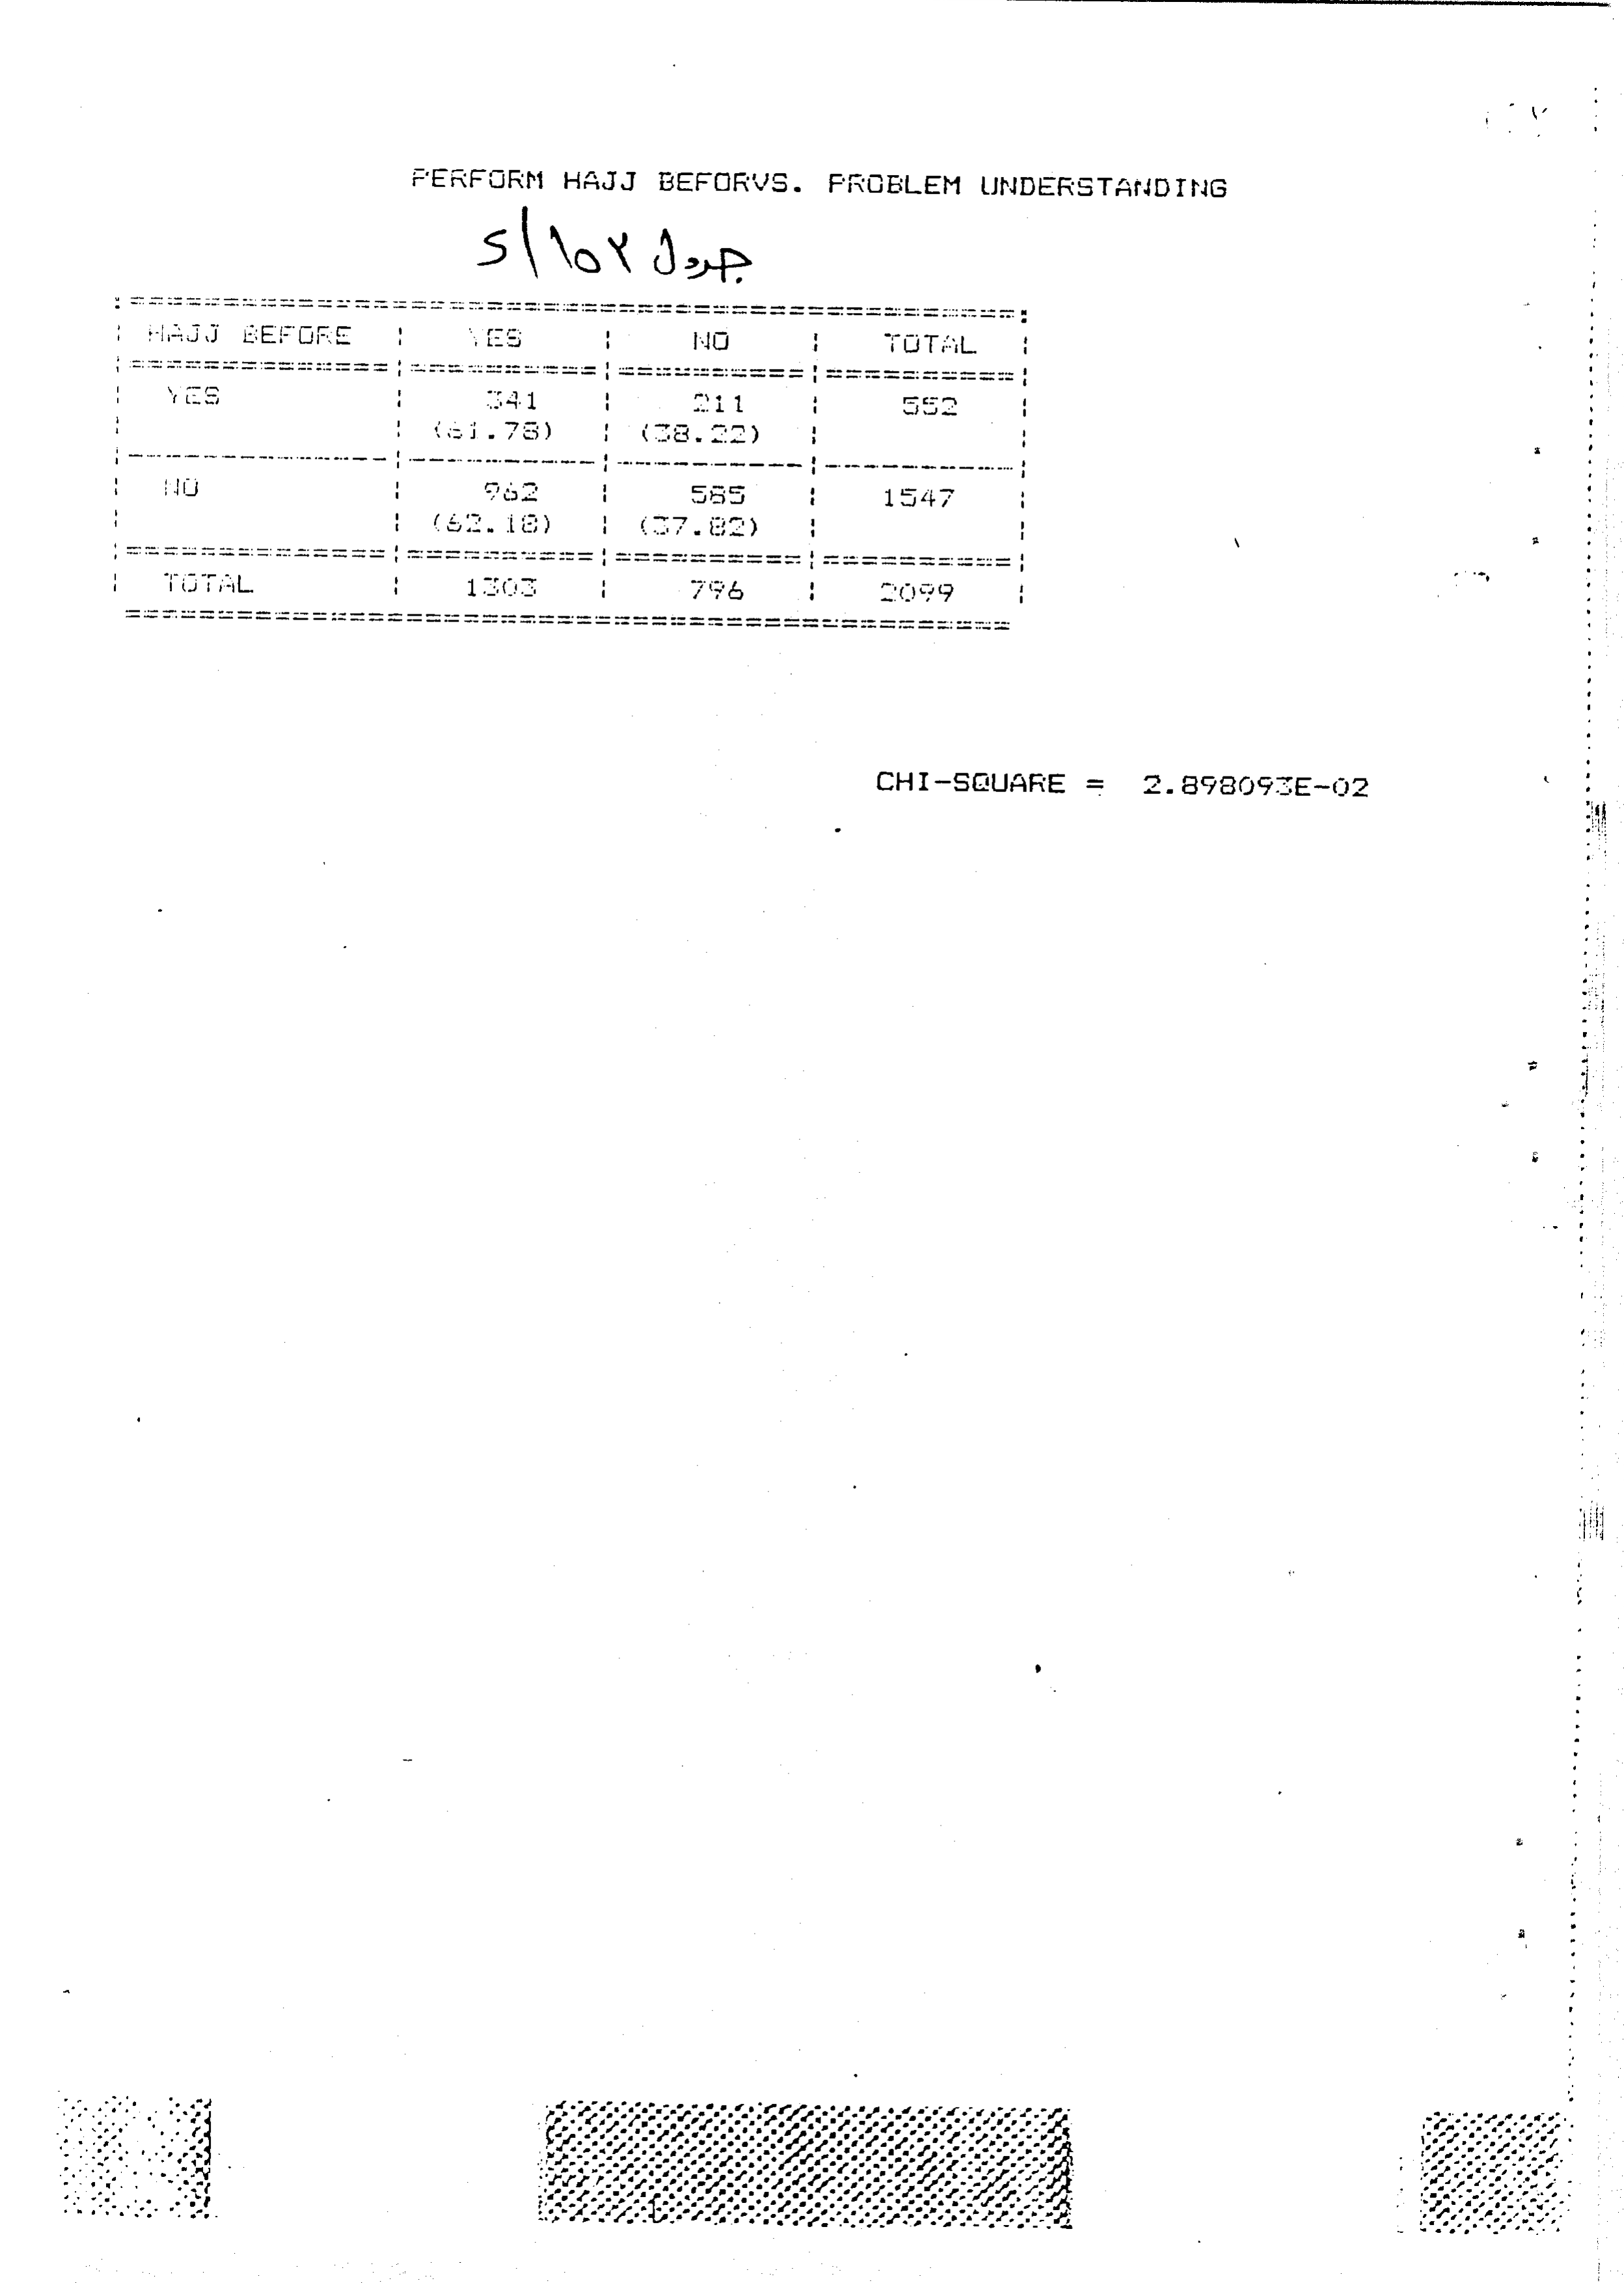 PERFORM HAJJ BEFORVS. PROBLEM UNDERSTANDING
جدول ١٥٢/د
HAJJ BEFORE YES NO TOTAL
YES 341 211 552
(61.78) (38.22)
NO 962 585 1547
(62.18) (37.82)
TOTAL 1303 796 2099
CHI-SQUARE = 2.898093E-02